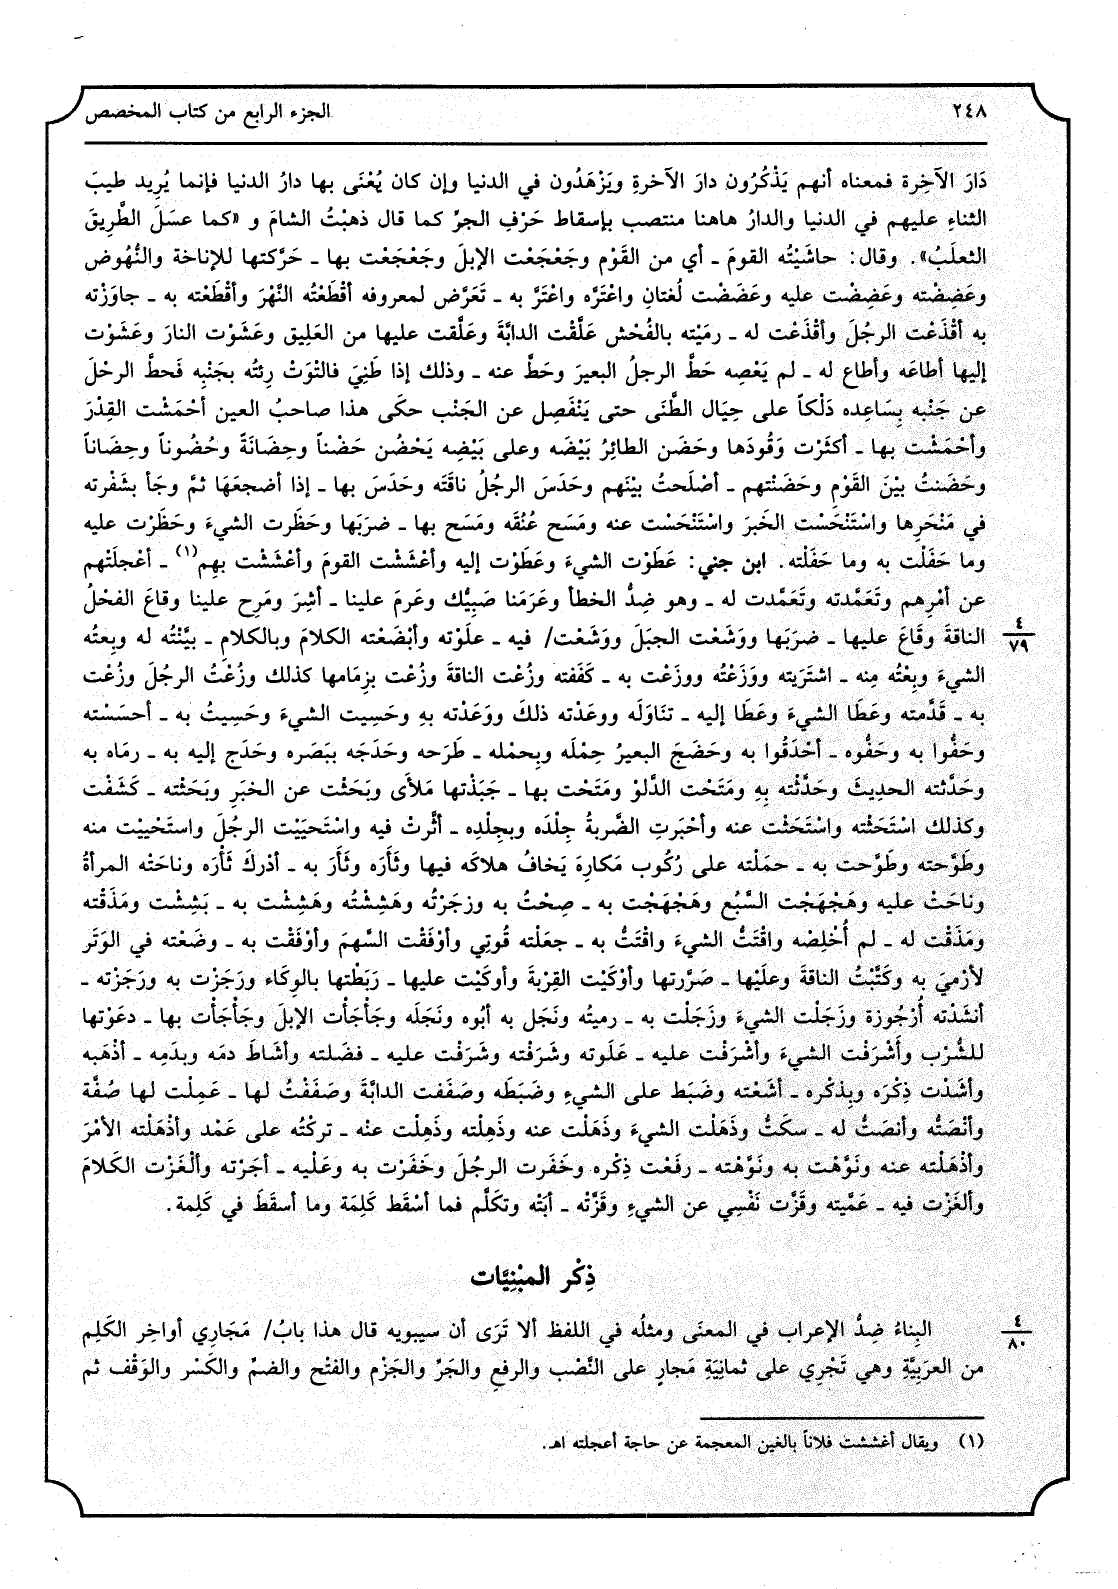 ٢٤٨
الجزء الرابع من كتاب المخصص
دَارَ الآخِرة فمعناه أنهم يَذْكُرُون دارَ الآخرةِ ويَزْهَدُون في الدنيا وإن كان يُعْنَى بها دارُ الدنيا فإنما يُرِيد طيبَ
الثناءِ عليهم في الدنيا والدارُ هاهنا منتصب بإسقاط حَرْفِ الجرِّ كما قال ذهبْتُ الشامَ و «كما عسَلَ الطَّرِيقَ
الثعلَبُ». وقال: حاشَيْتُه القومَ ـ أي من القَوْم وجَعْجَعْت الإبلَ وجَعْجَعْت بها ـ حَرَّكتها للإناخة والنُّهُوض
وعَضِضْته وعَضِضْت عليه وعَضَضْت لُغتانِ واعتَرَّه واعتَرَّ به ـ تَعَرَّض لمعروفه أقْطَعْتُه النَّهْرَ وأقْطَعْته به ـ جاوَزْته
به أقْذَعْت الرجُلَ وأقْذَعْت له ـ رمَيْته بالفُحْش عَلَّقْت الدابَّةَ وعَلَّقت عليها من العَلِيق وعَشَوْت النارَ وعَشَوْت
إليها أطاعَه وأطاع له ـ لم يَعْصِه حَطَّ الرجلُ البعيرَ وحَطَّ عنه ـ وذلك إذا طَنِيَ فالتْوَتْ رِئتُه بجَنْبِه فَحطَّ الرحْلَ
عن جَنْبه بِسَاعِده دَلْكاً على حِيَال الطَّنَى حتى يَنْفَصِل عن الجَنْب حكَى هذا صاحبُ العين أحْمَشْت القِدْرَ
وأحْمَشْت بها ـ أكثَرْت وَقُودَها وحَضَن الطائِرُ بَيْضَه وعلى بَيْضِه يَحْضُن حَضْناً وحِضَانَةً وحُضُوناً وحِضَاناً
وحَضَنتُ بيْنَ القَوْمِ وحَضَنْتهم ـ أصْلَحتُ بيْنَهم وحَدَسَ الرجُلُ ناقَتَه وحَدَسَ بها ـ إذا أضجعَهَا ثمَّ وجَأ بشَفْرته
في مَنْحَرِها واسْتَنْحَسْت الخَبَرَ واسْتَنْحَسْت عنه ومَسَح عُنُقَه ومَسَح بها ـ ضرَبَها وحَظَرت الشيءَ وحَظَرْت عليه
وما حَفَلْت به وما حَفَلْته. ابن جني: عَطَوْت الشيءَ وعَطَوْت إليه وأعْشَشْت القومَ وأعْشَشْت بهِم(١) ـ أعْجلَتْهم
عن أمْرِهم وتَعَمَّدته وتَعَمَّدت له ـ وهو ضِدُّ الخطأ وعَرَمَنا صَبِيُّك وعَرمَ علينا ـ أشِرَ ومَرِح علينا وقاعَ الفحْلُ
٤
٧٩
الناقةَ وقَاعَ عليها ـ ضرَبَها ووَشَعْت الجبَلَ ووَشَعْت/ فيه ـ علَوْته وأبْضَعْته الكلامَ وبالكلام ـ بيَّنْتُه له وبِعتُه
الشيءَ وبِعْتُه مِنه ـ اشتَرَيته ووَزَعْتُه ووزَعْت به ـ كَفَفته وزُعْت الناقةَ وزُعْت بزِمَامها كذلك وزُعْتُ الرجُلَ وزُعْت
به ـ قَدَّمته وعَطَا الشيءَ وعَطَا إليه ـ تنَاوَلَه ووعَدْته ذلكَ ووَعَدْته بهِ وحَسِيت الشيءَ وحَسِيتُ به ـ أحسَسْته
وحَفُّوا به وحَفُّوه ـ أحْدَقُوا به وحَضَجَ البعيرُ حِمْلَه وبِحمْله ـ طَرَحه وحَدَجَه ببَصَره وحَدَج إليه به ـ رمَاه به
وحَدَّثته الحدِيثَ وحَدَّثْتُه بِهِ ومتَحْت الدَّلوَ ومَتَحْت بها ـ جَبَذْتها مَلأى وبَحَثْت عن الخبَرِ وبَحَثْته ـ كَشَفْت
وكذلك اسْتَحَثْته واسْتَحَثْت عنه وأحْبَرتِ الضَّربةُ جِلْدَه وبجِلْدِه ـ أثَّرتْ فيه واستَحيَيْت الرجُلَ واستَحْييْت منه
وطَوَّحته وطَوَّحت به ـ حمَلْته على رُكُوب مَكارِهَ يَخافُ هلاكَه فيها وثَأَرَه وثَأَرَ به ـ أدْركَ ثَأْرَه وناحَتْه المرأةُ
وناحَتْ عليه وهَجْهَجْت السَّبُع وهَجْهَجْت به ـ صِحْتُ به وزجَرْتُه وهَشِشْتُه وهَشِشْت به ـ بَشِشْت ومَذَقْته
ومَذَقْت له ـ لم أُخْلِصْه واقْتَتُّ الشيءَ واقْتَتُّ به ـ جعَلْته قُوتِي وأوْفَقْت السَّهمَ وأوْفَقْت به ـ وضَعْته في الوَتَر
لأرْميَ به وكَتَّبْتُ الناقةَ وعلَيْها ـ صَرَّرتها وأوْكَيْت القِرْبةَ وأوكَيْت عليها ـ رَبَطْتها بالوِكَاء ورَجَزْت به ورَجَزْته ـ
أنشَدْته أُرْجُوزة وزَجَلْت الشيءَ وزَجَلْت به ـ رميتُه ونَجَل به أبُوه ونَجَلَه وجَأْجَأْت الإبلَ وجَأْجَأت بها ـ دعَوْتها
للشُّرْب وأَشْرَفْت الشيءَ وأشْرَفْت عليه ـ عَلَوته وشَرَفْته وشَرَفْت عليه ـ فضَلته وأشَاطَ دمَه وبدَمِه ـ أذْهَبه
وأشَدْت ذِكْرَه وبِذكْره ـ أشَعْته وضَبَط على الشيءِ وضَبَطَه وصَفَفت الدابَّةَ وصَفَفْتُ لها ـ عَمِلْت لها صُفَّة
وأنْصَتُّه وأنصَتُّ له ـ سكَتُّ وذَهَلْت الشيءَ وذَهَلْت عنه وذَهِلْته وذَهِلْت عنْه ـ تركتُه على عَمْد وأذْهَلْته الأمْرَ
وأذْهَلْته عنه ونَوَّهْت به ونَوَّهْته ـ رفَعْت ذِكْره وخَفَرت الرجُلَ وخَفَرْت به وعَلْيه ـ أجَرْته وألْغَزْت الكَلامَ
وألغَزْت فيه ـ عَمَّيته وقَزَّت نَفْسِي عن الشيءِ وقَزَّتْه ـ أبَتْه وتكَلَّم فما أسْقَط كَلِمَة وما أسقَطَ في كَلِمة.
ذِكْر المبْنِيَّات
٤
٨٠
البِناءُ ضِدُّ الإعراب في المعنَى ومثلُه في اللفظ ألا تَرَى أن سيبويه قال هذا بابُ/ مَجَارِي أواخِر الكَلِم
من العرَبِيَّةِ وهي تَجْرِي على ثمانِيَةِ مَجارٍ على النَّصْب والرفعِ والجَرِّ والجَزْم والفَتْح والضمِّ والكَسْر والوَقْف ثم
(١) ويقال أغششت فلاناً بالغين المعجمة عن حاجة أعجلته اهـ.